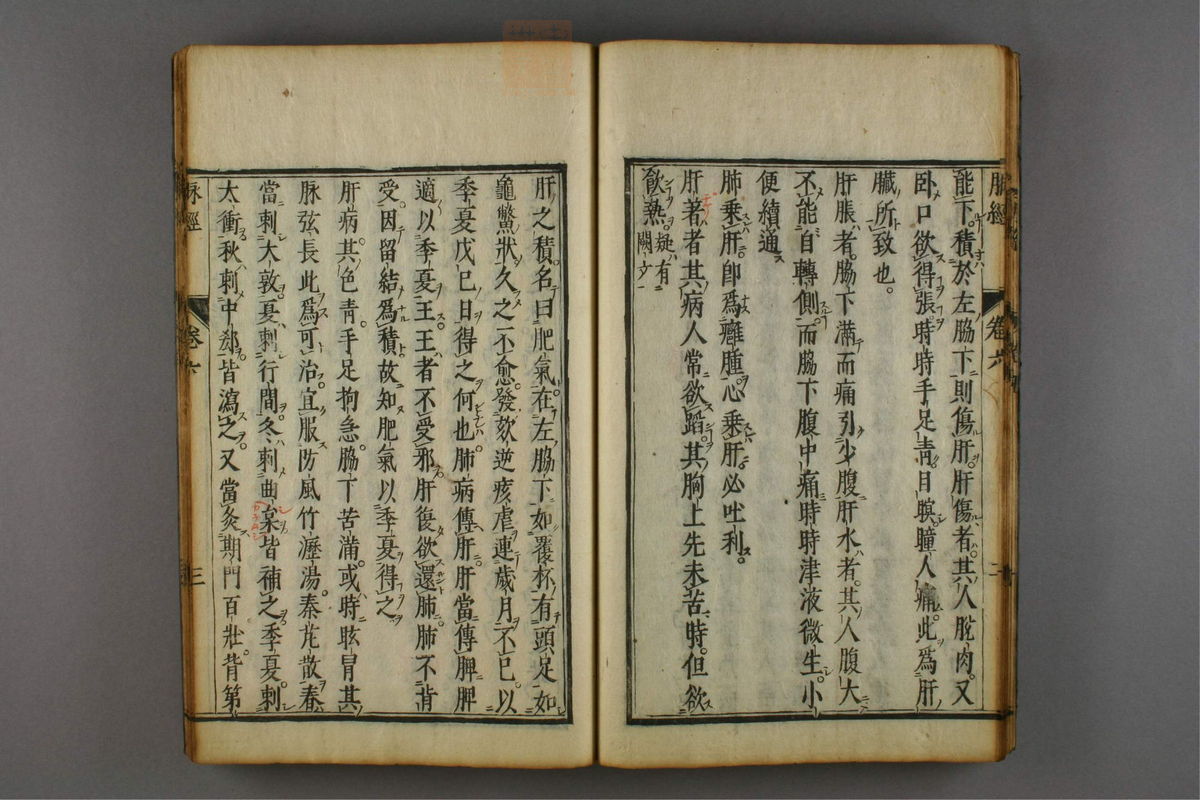 脉經 卷六 二
能下。積於左脇下則傷肝。肝傷者。其人脫肉。又
卧口欲得張。時時手足靑。目瞑。瞳人痛。此爲肝
臟所致也。
肝脹者。脇下滿而痛引少腹。肝水者。其人腹大
不能自轉側。而脇下腹中痛。時時津液微生。小
便續通
肺乗肝。卽爲癰腫。心乗肝。必吐利。
肝著者。其病人常欲蹈其胸上。先未苦時。但欲
飮熱。疑有闕文
肝之積。名曰肥氣。在左脇下。如覆杯。有頭足。如
龜鱉狀。久久不愈。發欬逆痎瘧。連歲月不已。以
季夏戊己日得之。何也。肺病傳肝。肝當傳脾。脾
適以季夏王。王者不受邪。肝復欲還肺。肺不肯
受。因留結爲積。故知肥氣以季夏得之
肝病。其色靑。手足拘急。脇下苦滿。或時眩冒。其
脉弦長。此爲可治。宜服防風竹瀝湯。秦艽散。春
當刺大敦。夏刺行間。冬刺曲泉。皆補之。季夏刺
太衝。秋刺中郄。皆瀉之。又當灸期門百壯。背第
脉經 卷六 三